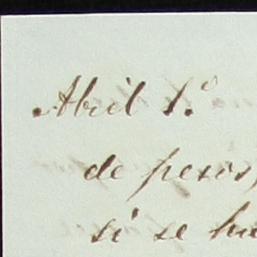 Abril 1.º
de pesos,
si se